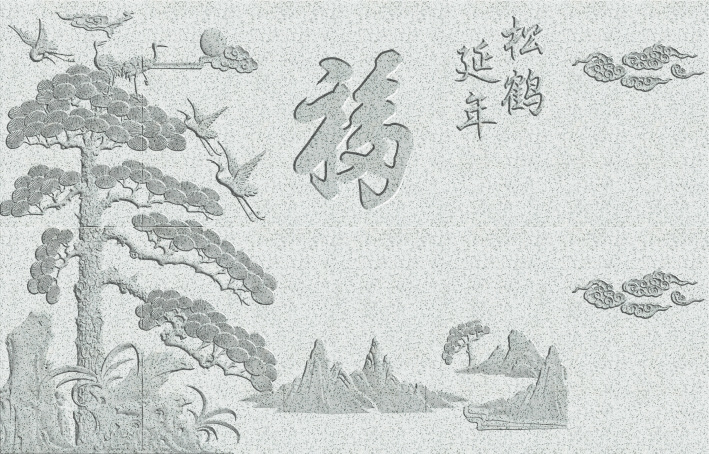 福
松鹤
延年